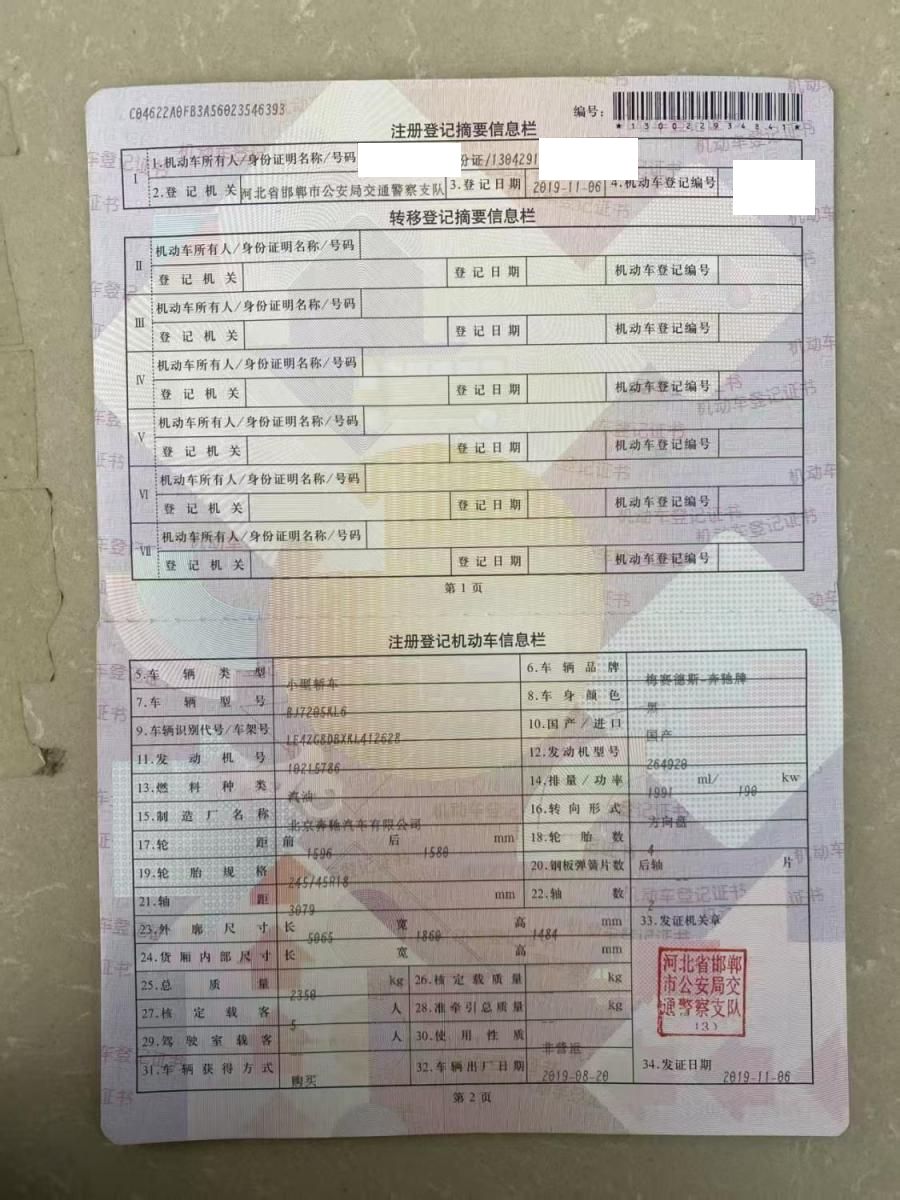 C04622A0FB3A56023546393
编号：
*130022934841*
注册登记摘要信息栏
I 1.机动车所有人/身份证明名称/号码 份证/1304291
2.登记机关 河北省邯郸市公安局交通警察支队 3.登记日期 2019-11-06 4.机动车登记编号
转移登记摘要信息栏
II 机动车所有人/身份证明名称/号码
登记机关 登记日期 机动车登记编号
III 机动车所有人/身份证明名称/号码
登记机关 登记日期 机动车登记编号
IV 机动车所有人/身份证明名称/号码
登记机关 登记日期 机动车登记编号
V 机动车所有人/身份证明名称/号码
登记机关 登记日期 机动车登记编号
VI 机动车所有人/身份证明名称/号码
登记机关 登记日期 机动车登记编号
VII 机动车所有人/身份证明名称/号码
登记机关 登记日期 机动车登记编号
第1页
注册登记机动车信息栏
5.车辆类型 小型轿车 6.车辆品牌 梅赛德斯-奔驰牌
7.车辆型号 BJ7205KL6 8.车身颜色 黑
9.车辆识别代号/车架号 LE4ZG8DBXKL412628 10.国产/进口 国产
11.发动机号 10215786 12.发动机型号 264920
13.燃料种类 汽油 14.排量/功率 1991 ml/ 190 kw
15.制造厂名称 北京奔驰汽车有限公司 16.转向形式 方向盘
17.轮距 前 1596 后 1580 mm 18.轮胎数 4
19.轮胎规格 245/45R18 20.钢板弹簧片数 后轴 -- 片
21.轴距 3079 mm 22.轴数 2
23.外廓尺寸 长 5065 宽 1860 高 1484 mm 33.发证机关章
24.货厢内部尺寸 长 宽 高 mm
25.总质量 2350 kg 26.核定载质量 kg
27.核定载客 5 人 28.准牵引总质量 -- kg
29.驾驶室载客 -- 人 30.使用性质 非营运
31.车辆获得方式 购买 32.车辆出厂日期 2019-08-20 34.发证日期 2019-11-06
河北省邯郸
市公安局交
通警察支队
(3)
第2页